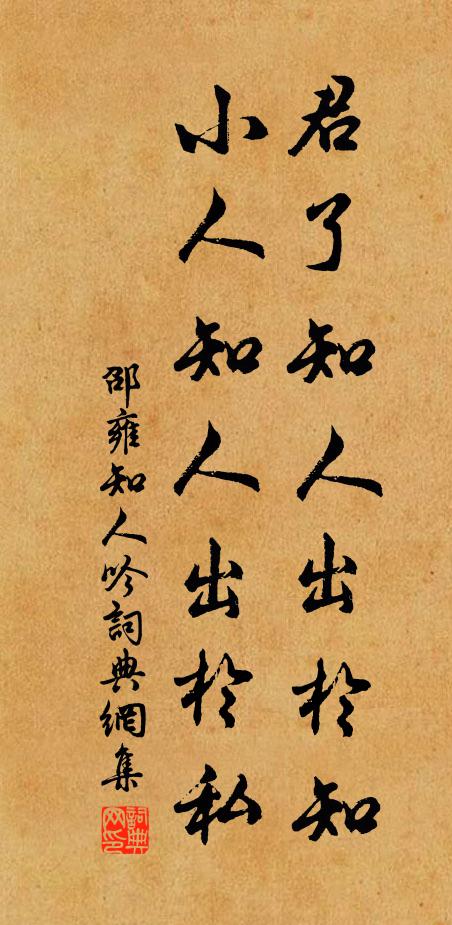 君了知人出於知
小人知人出於私
邵雍知人吟詞典網集
詞典网印